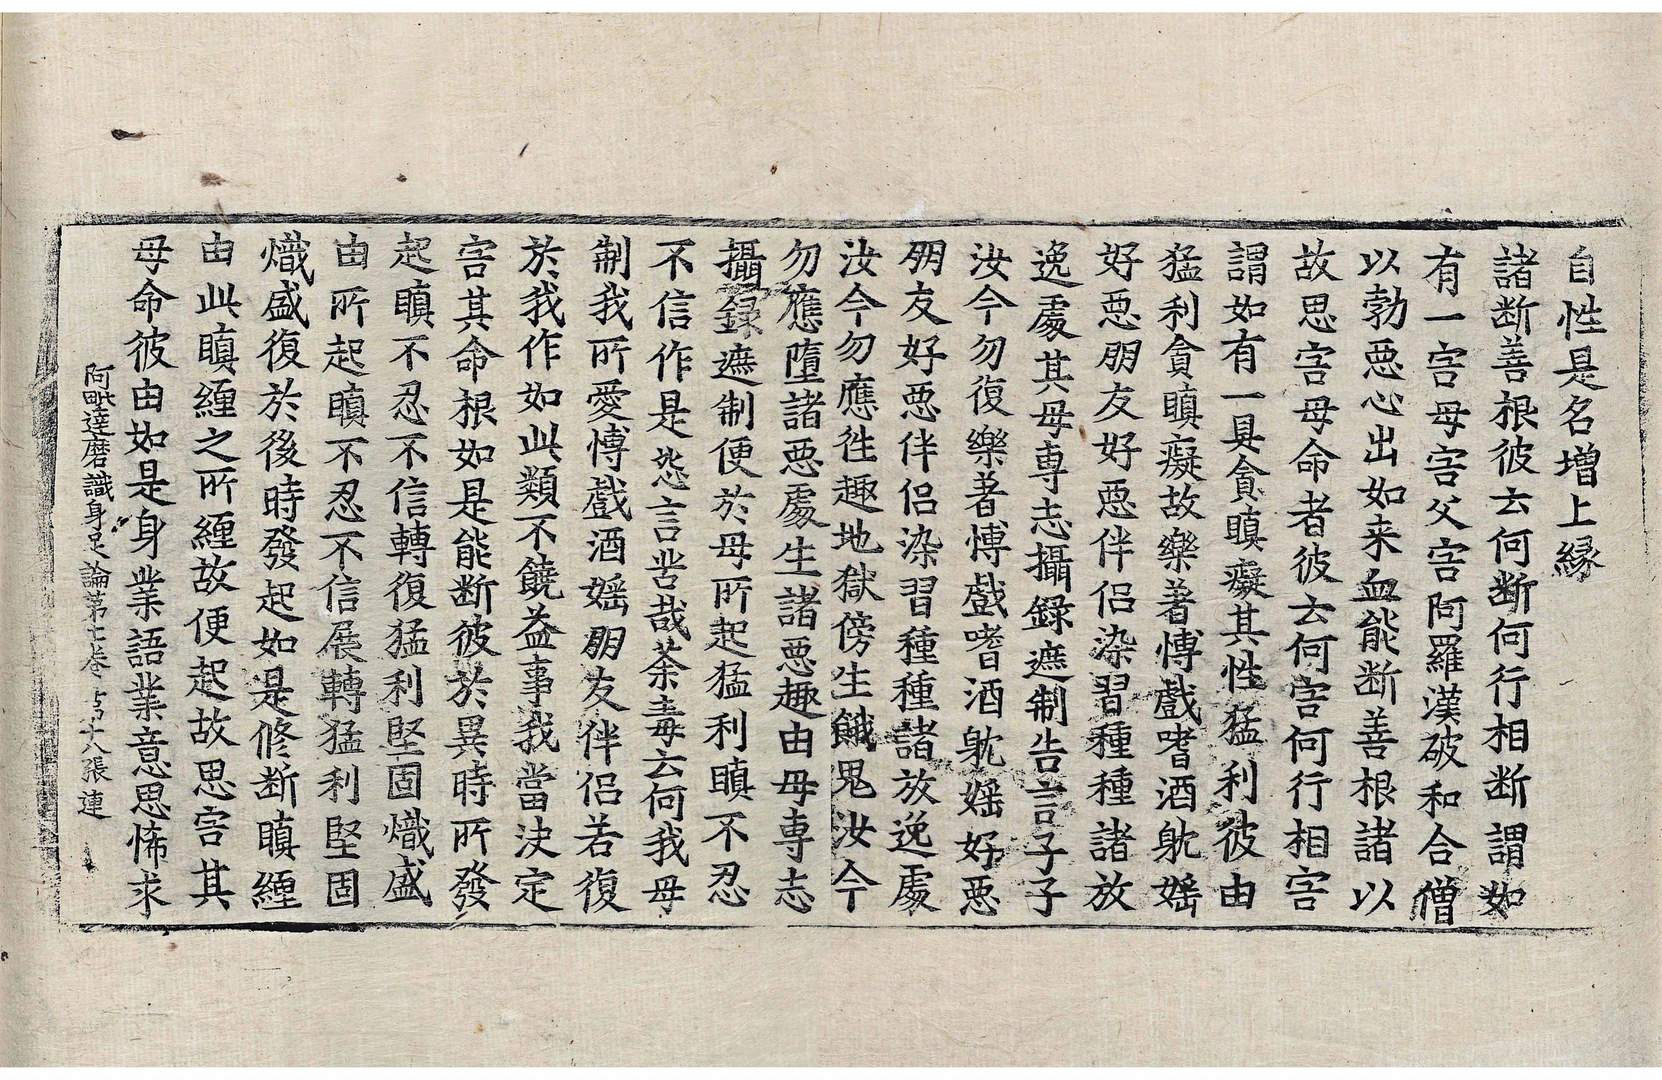 自性是名增上緣
諸斷善根彼云何斷何行相斷謂如
有一害母害父害阿羅漢破和合僧
以勃惡心出如来血能断善根諸以
故思害母命者彼云何害何行相害
謂如有一具貪瞋癡其性猛利彼由
猛利貪瞋癡故樂著博戲嗜酒躭婬
好惡朋友好惡伴侣染習種種諸放
逸處其母專志攝録遮制告言子子
汝今勿復樂著博戲嗜酒躭婬好惡
朋友好惡伴侣染習種種諸放逸處
汝今勿應徃趣地獄傍生餓鬼汝今
勿應墮諸惡處生諸惡趣由母專志
攝録遮制便於母所起猛利瞋不忍
不信作是惡言苦哉荼毒云何我母
制我所愛博戲酒婬朋友伴侣若復
於我作如此類不饒益事我當決定
害其命根如是能断彼於異時所發
起瞋不忍不信轉復猛利堅固熾盛
由所起瞋不忍不信展轉猛利堅固
熾盛復於後時發起如是修断瞋纏
由此瞋纏之所纏故便起故思害其
母命彼由如是身業語業意思怖求
阿毗達磨識身足論第七卷 十八張 連